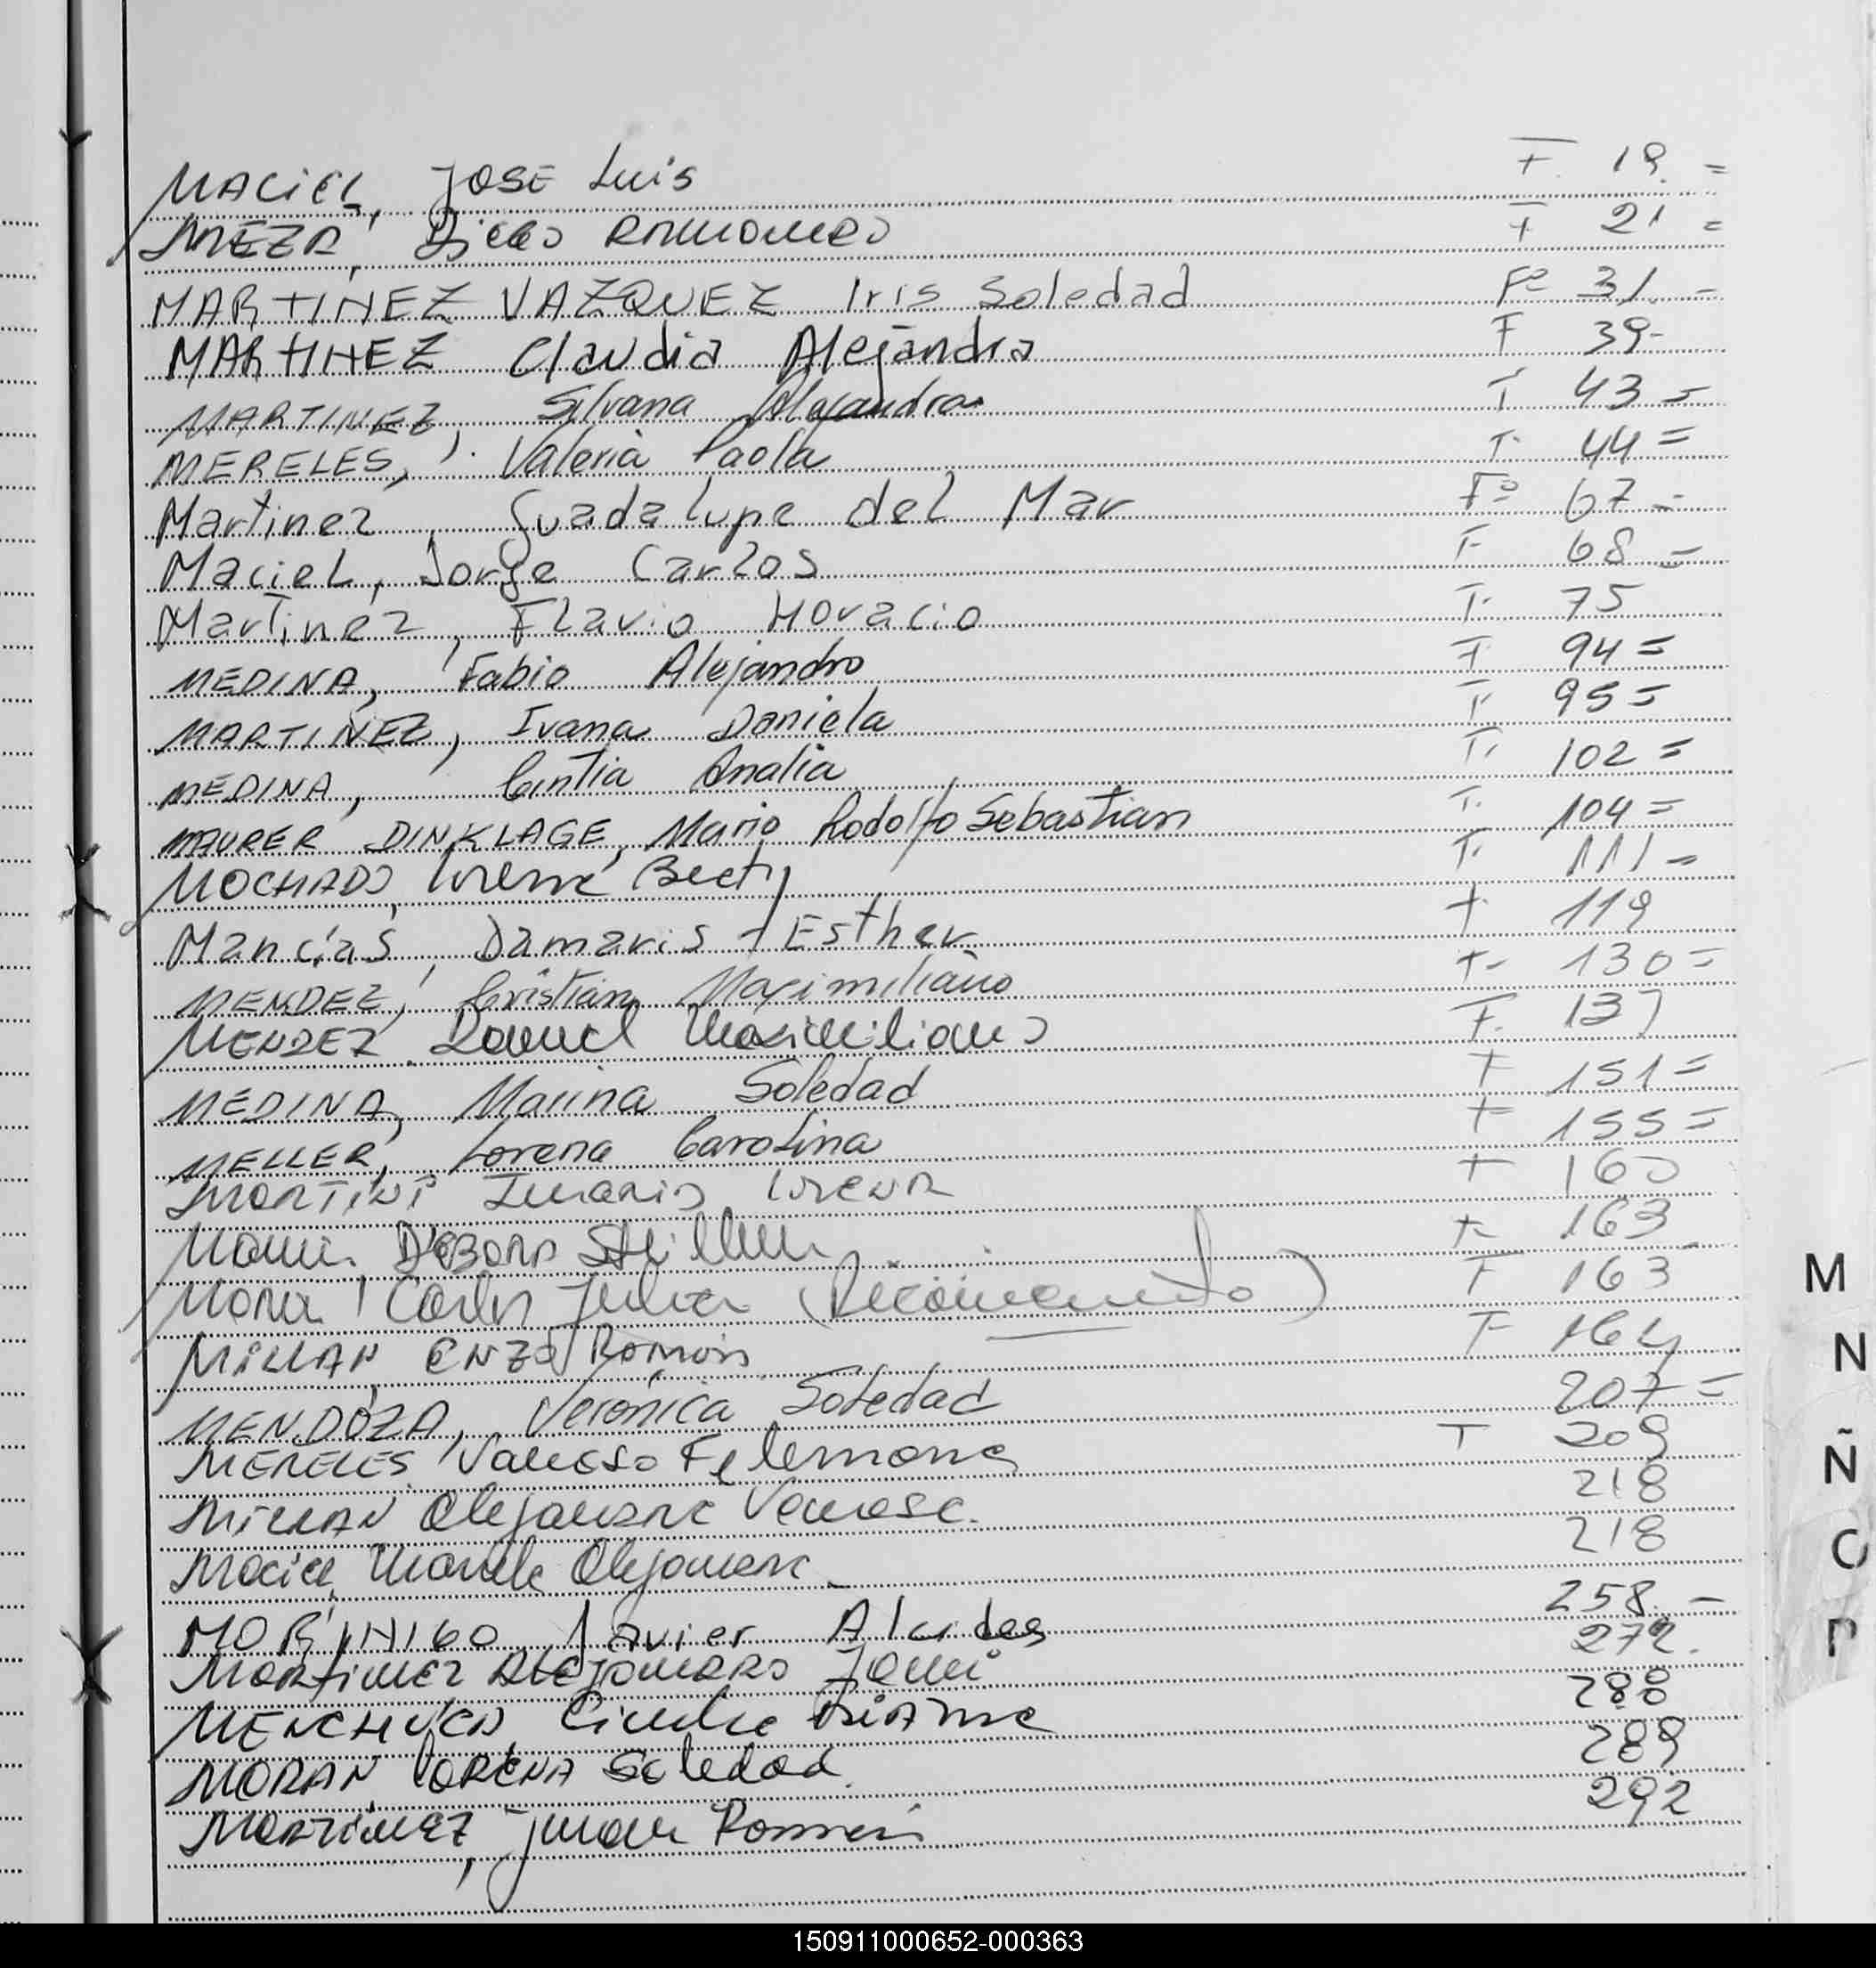 MACIEL, JOSE Luis F. 19 =
MEZA, Diego F 21 =
MARTINEZ VAZQUEZ Iris Soledad Fº 31. =
MARTINEZ Claudia Alejandra F 39-
MARTINEZ, Silvana Alejandra F 43 =
MERELES, Valeria Paola F. 44 =
Martinez, Guadalupe del Mar Fº 67 =
Maciel, Jorge Carlos F 68 =
Martinez, Flavio Horacio F. 75
MEDINA, Fabio Alejandro F 94 =
MARTINEZ, Ivana Daniela F 95 =
MEDINA, Cintia Analia F. 102 =
MAURER DINKLAGE, Mario Rodolfo Sebastian F. 104 =
MOCHADO, Lorena Beety F. 111 =
Mancias, Damaris Esther F 119
MENDEZ, Cristian Maximiliano F- 130 =
MENDEZ Maximiliano F. 137
MEDINA, Marina Soledad F 151 =
MELLER, Lorena Carolina F 155 =
MARTINI Lorena F 160
F 163
Carlos (Reconocimiento) F 163
MILLAN, ENZO Ramon F 164
MENDOZA, Verónica Soledad 207 =
MERELES, Vanessa Filemona F 209
MILLAN Alejandra Vanesa. 218
Maciel, Alejandra 218
MORINIGO, Javier Alcides 258 -
Martinez Alejandro 272.
MENCHUCA, 288
MORAN, LORENA Soledad. 289
Martinez, Juan Ramon 292
M
N
Ñ
O
P
150911000652-000363